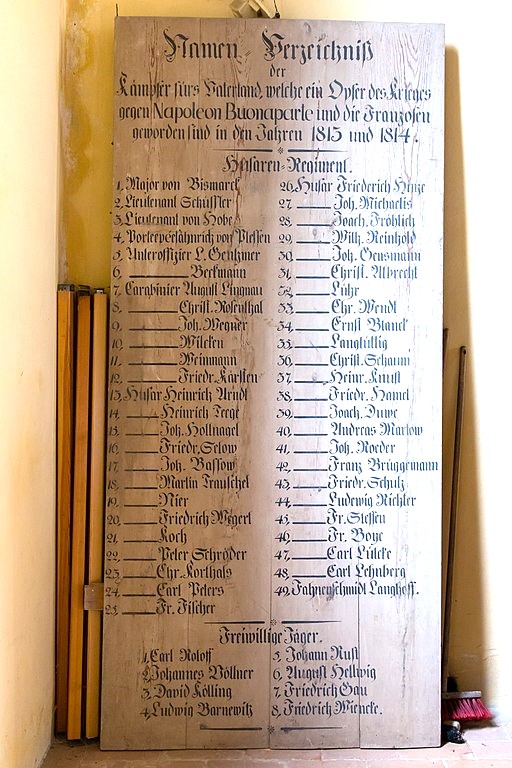 Namen-Verzeichniß
der
Kämpfer fürs Vaterland, welche ein Opfer des Krieges
gegen Napoleon Buonaparte und die Franzosen
geworden sind in den Jahren 1813 und 1814.
Husaren-Regiment.
1, Major von Bismarck
2, Lieutenant Schüßler
3, Lieutenant von Hobe
4, Porteepeefähnrich von Plessen
5, Unteroffizier L. Gentzner
6, Beckmann
7, Carabinier August Lingnau
8, Christ. Rosenthal
9, Joh. Wegner
10, Milcken
11, Weinmann
12, Friedr. Karsten
13, Husar Heinrich Arndt
14, Heinrich Teege
15, Joh. Hollnagel
16, Friedr. Selow
17, Joh. Bassow
18, Martin
19, Nier
20, Friedrich Wegert
21, Koch
22, Peter Schröder
23, Chr. Korthals
24, Carl Peters
25, Fr. Fischer
26, Husar Friederich Hinze
27, Joh. Michaelis
28, Joach. Fröhlich
29, Wilh. Reinhold
30, Joh. Gensmann
31, Christ. Albrecht
32, Lühr
33, Chr. Wendt
34, Ernst Blanck
35, Langlüttig
36, Christ. Schamm
37, Heinr. Knust
38, Friedr. Hamel
39, Joach. Duwe
40, Andreas Martow
41, Joh. Roeder
42, Franz Brüggemann
43, Friedr. Schulz
44, Ludwig Richter
45, Fr. Steffen
46, Fr. Boye
47, Carl Lütcke
48, Carl Lehnberg
49, Fahnenschmidt Langhoff.
Freiwillige Jäger.
1, Carl Roloff
2, Johannes Völlner
3, David Kölling
4, Ludwig Barnewitz
5, Johann Rust
6, August Hellwig
7, Friedrich Gau
8, Friedrich Wiencke.